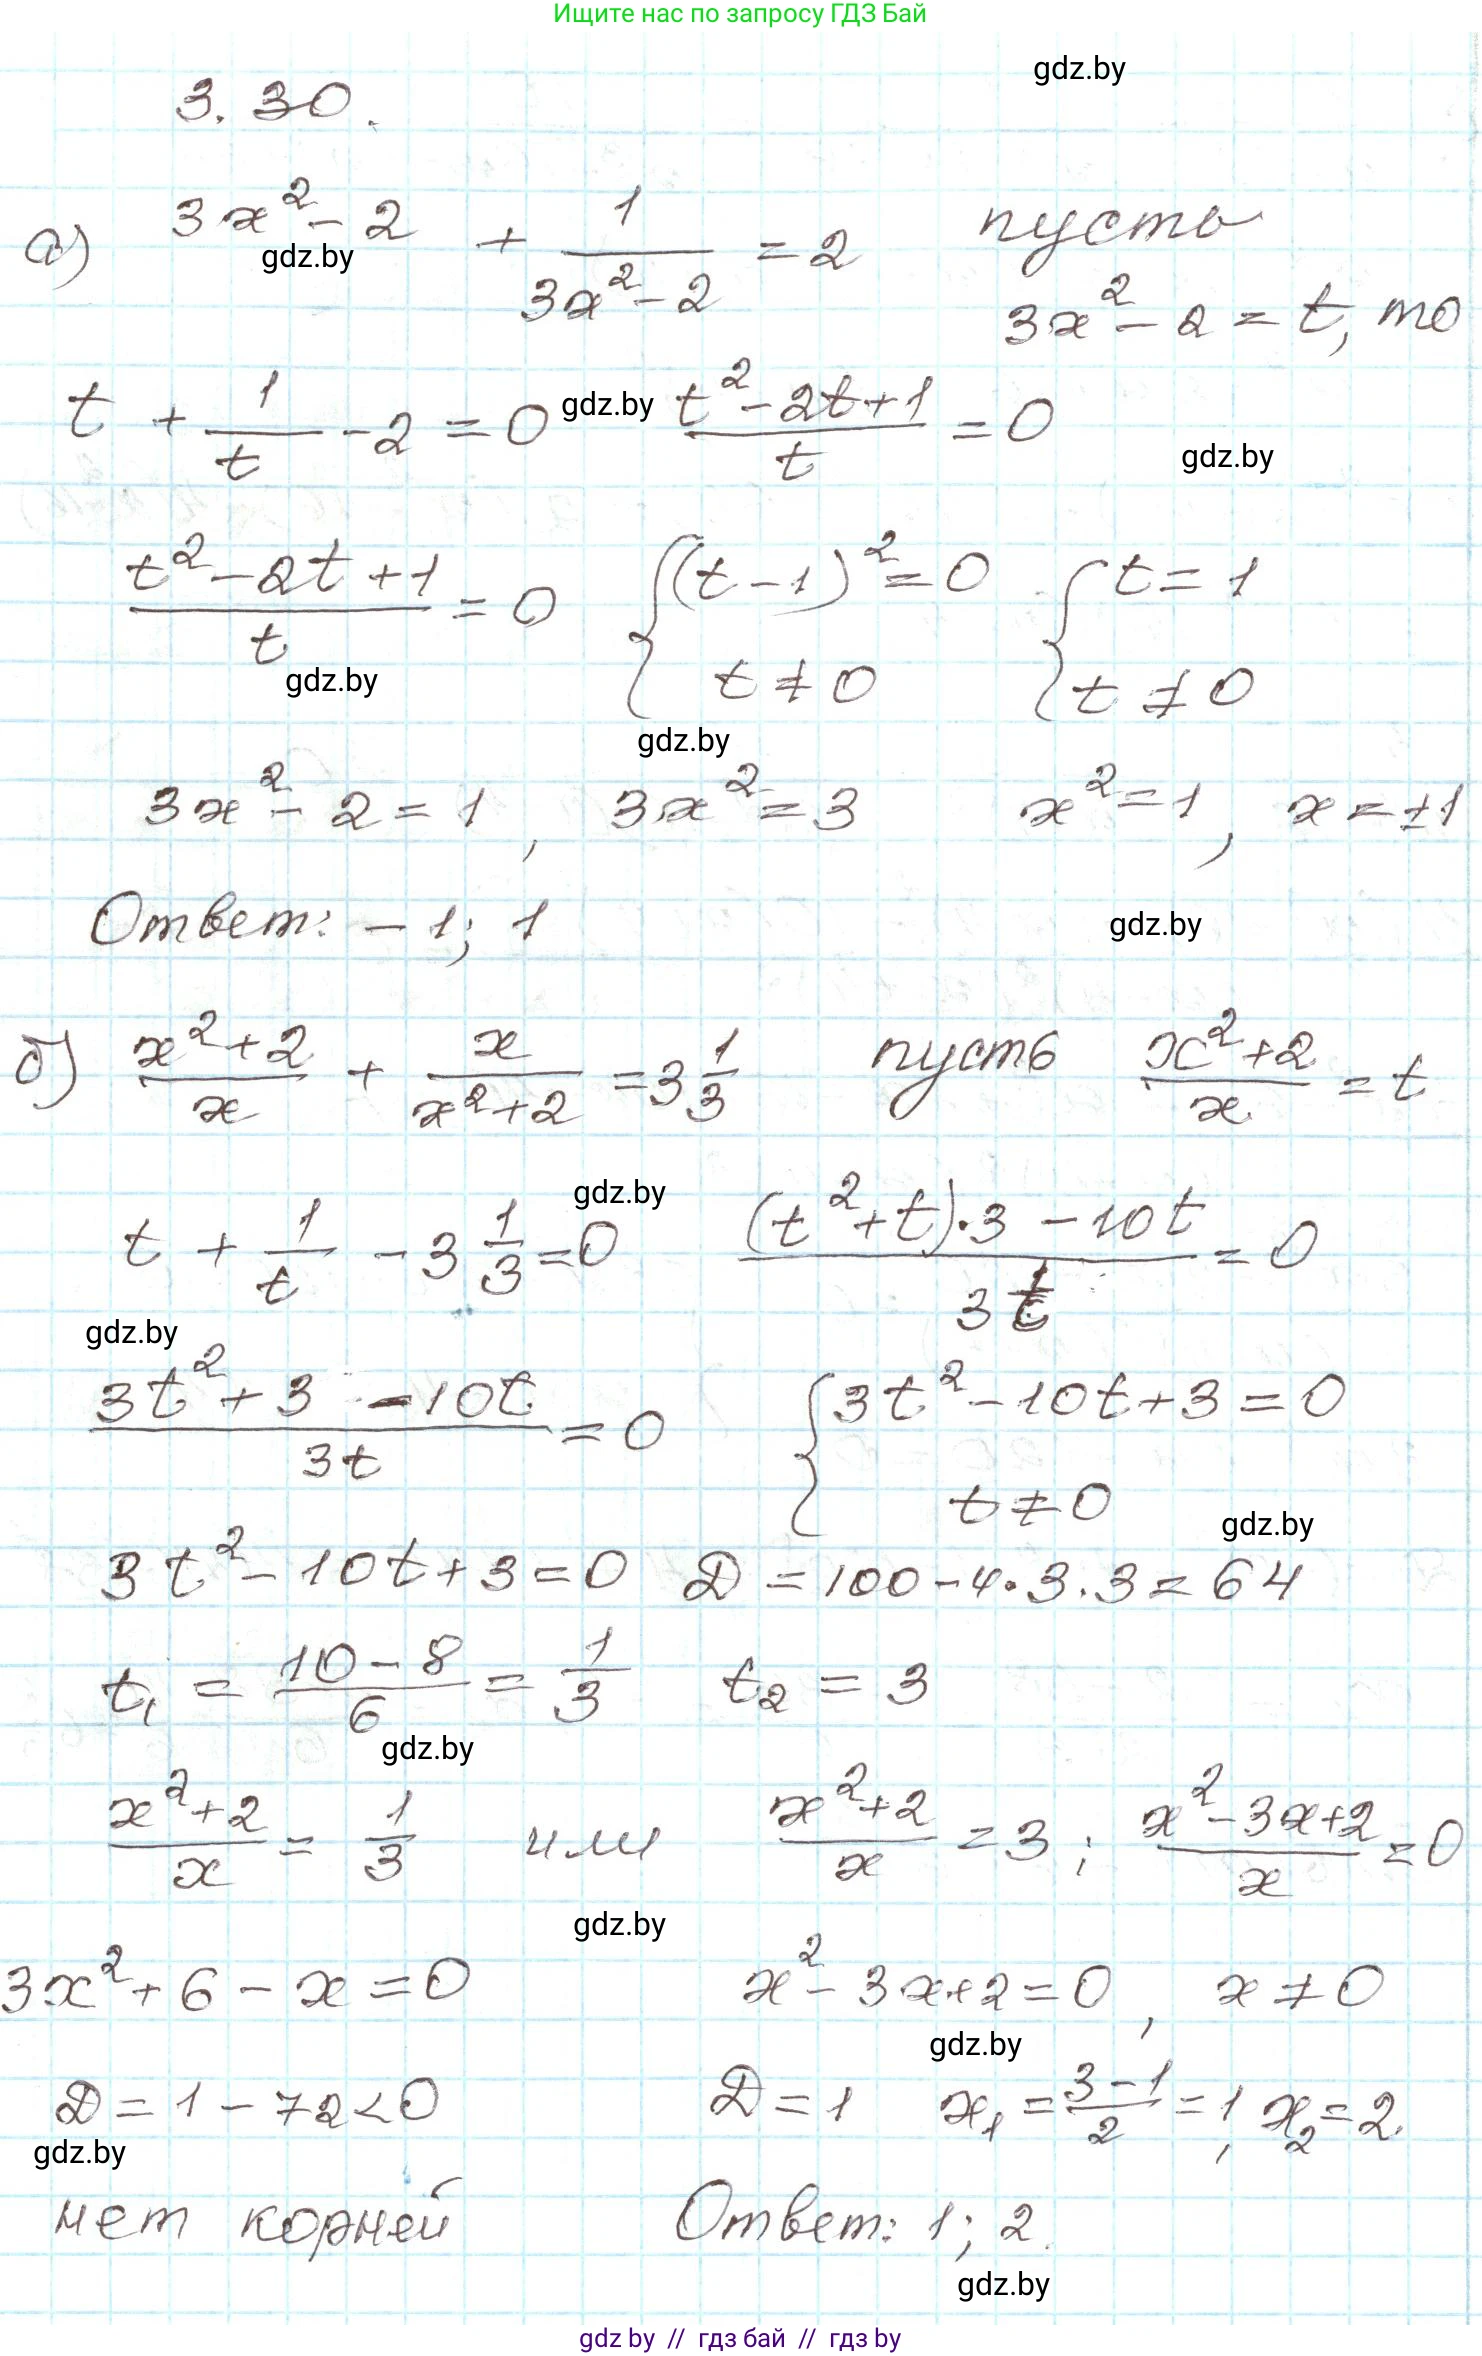 Ищите нас по запросу ГДЗ Бай
gdz.by
3.30.
а) 3x² - 2 + 1/(3x² - 2) = 2 пусть
gdz.by
3x² - 2 = t, то
t + 1/t - 2 = 0 gdz.by (t² - 2t + 1)/t = 0
gdz.by
(t² - 2t + 1)/t = 0 { (t - 1)² = 0 { t = 1
gdz.by t ≠ 0 t ≠ 0
gdz.by
3x² - 2 = 1, 3x² = 3 x² = 1, x = ±1
Ответ: -1; 1 gdz.by
б) (x² + 2)/x + x/(x² + 2) = 3 1/3 пусть (x² + 2)/x = t
gdz.by
t + 1/t - 3 1/3 = 0 ((t² + t)·3 - 10t)/(3t) = 0
gdz.by
(3t² + 3 - 10t)/(3t) = 0 { 3t² - 10t + 3 = 0
t ≠ 0
gdz.by
3t² - 10t + 3 = 0 D = 100 - 4·3·3 = 64
t₁ = (10 - 8)/6 = 1/3 t₂ = 3
gdz.by
(x² + 2)/x = 1/3 или (x² + 2)/x = 3; (x² - 3x + 2)/x = 0
gdz.by
3x² + 6 - x = 0 x² - 3x + 2 = 0, x ≠ 0
gdz.by
D = 1 - 72 < 0 D = 1 x₁ = (3 - 1)/2 = 1, x₂ = 2.
gdz.by
нет корней Ответ: 1; 2.
gdz.by
gdz by // гдз бай // гдз by